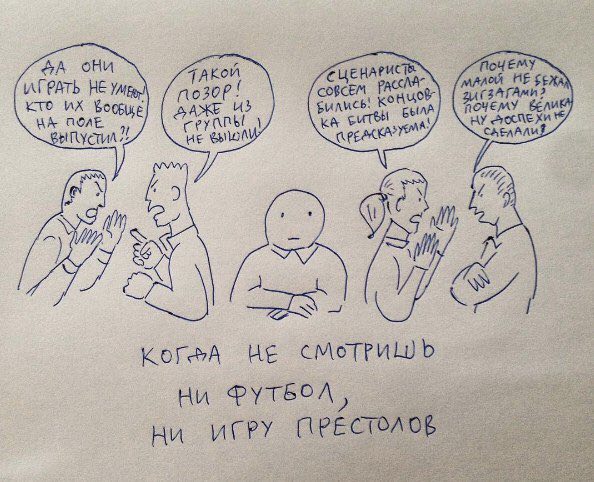 ДА ОНИ
ИГРАТЬ НЕ УМЕЮТ!
КТО ИХ ВООБЩЕ
НА ПОЛЕ
ВЫПУСТИЛ?!
ТАКОЙ
ПОЗОР!
ДАЖЕ ИЗ
ГРУППЫ
НЕ ВЫШЛИ!
СЦЕНАРИСТЫ
СОВСЕМ РАССЛА-
БИЛИСЬ! КОНЦОВ-
КА БИТВЫ БЫЛА
ПРЕДСКАЗУЕМА!
ПОЧЕМУ
МАЛОЙ НЕ БЕЖАЛ
ЗИГЗАГАМИ?
ПОЧЕМУ ВЕЛИКА-
НУ ДОСПЕХИ НЕ
СДЕЛАЛИ?
КОГДА НЕ СМОТРИШЬ
НИ ФУТБОЛ,
НИ ИГРУ ПРЕСТОЛОВ